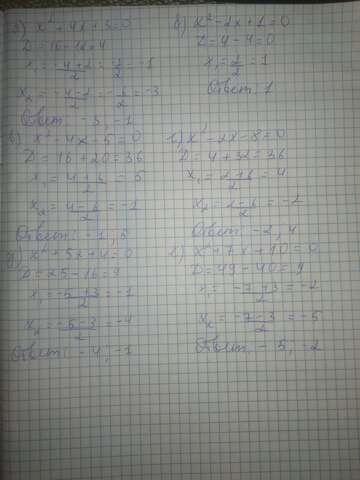 а) x² + 4x + 3 = 0
D = 16 - 12 = 4
x₁ = (-4+2)/2 = -2/2 = -1
x₂ = (-4-2)/2 = -6/2 = -3
Ответ: -3, -1
б) x² - 2x + 1 = 0
D = 4 - 4 = 0
x₁ = 2/2 = 1
Ответ: 1
в) x² - 4x - 5 = 0
D = 16 + 20 = 36
x₁ = (4+6)/2 = 5
x₂ = (4-6)/2 = -1
Ответ: -1, 5
г) x² - 2x - 8 = 0
D = 4 + 32 = 36
x₁ = (2+6)/2 = 4
x₂ = (2-6)/2 = -2
Ответ: -2, 4
д) x² + 5x + 4 = 0
D = 25 - 16 = 9
x₁ = (-5+3)/2 = -1
x₂ = (-5-3)/2 = -4
Ответ: -4, -1
е) x² + 7x + 10 = 0
D = 49 - 40 = 9
x₁ = (-7+3)/2 = -2
x₂ = (-7-3)/2 = -5
Ответ: -5, -2